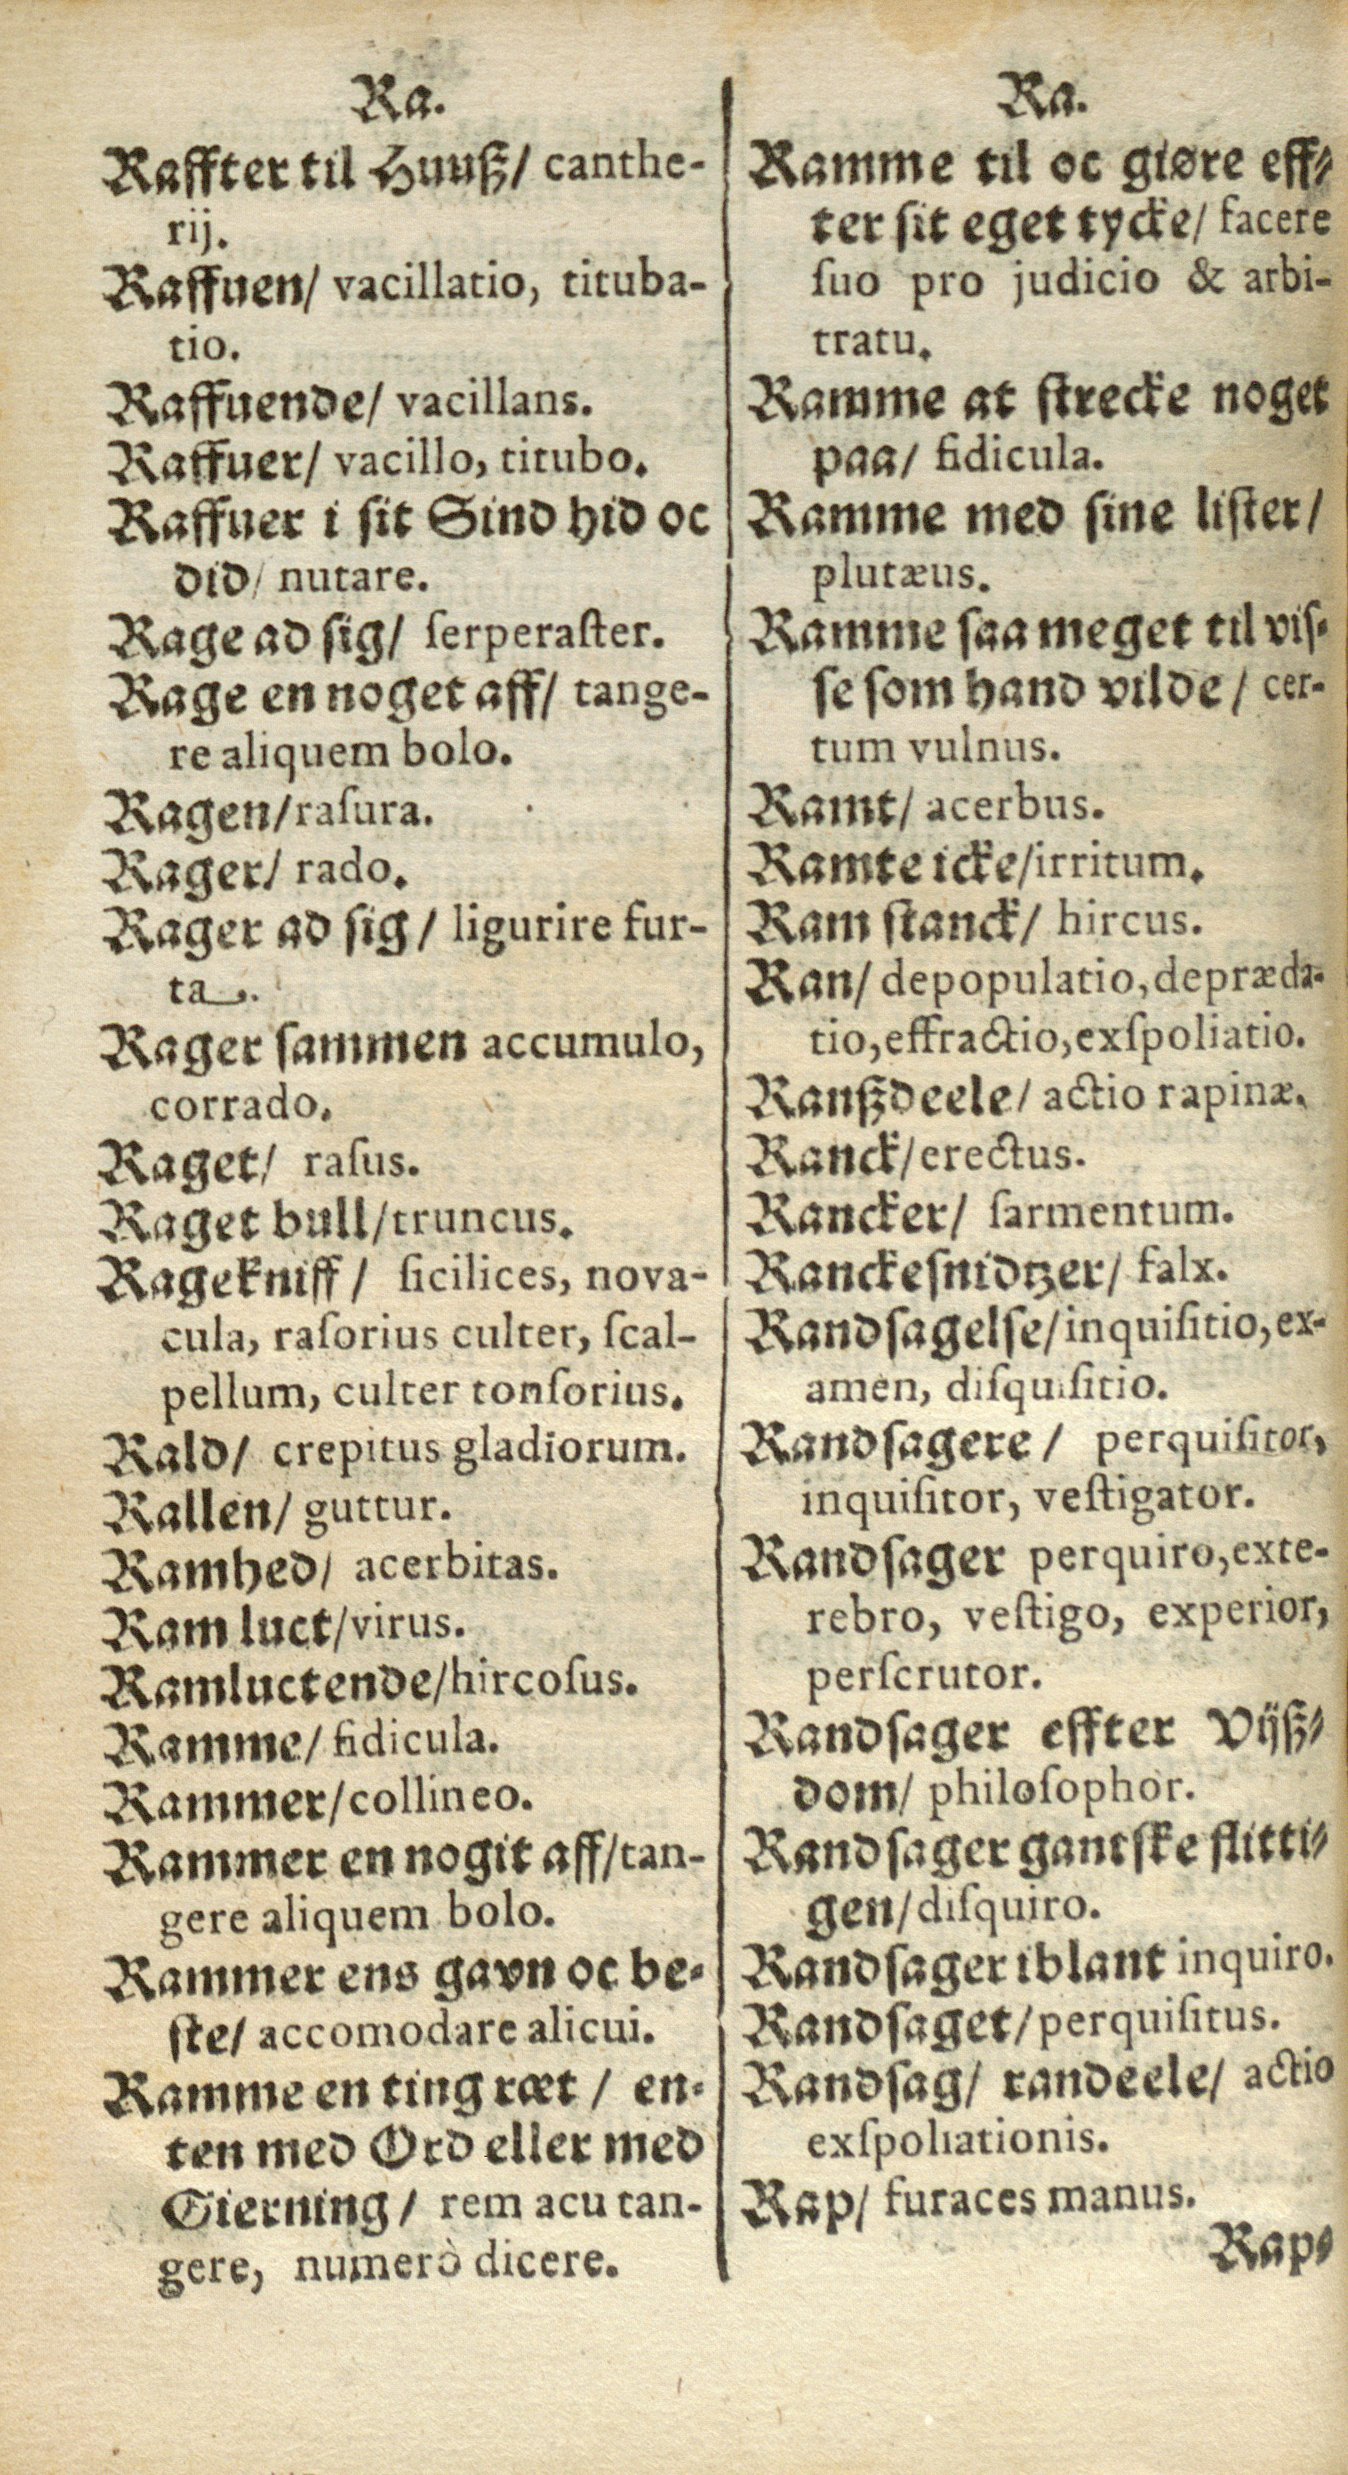 Ra.
Raffter til Huuß/ canthe-
rij.
Raffuen/ vacillatio, tituba-
tio.
Raffuende/ vacillans.
Raffuer/ vacillo, titubo.
Raffuer i ſit Sind hid oc
did/ nutare.
Rage ad ſig/ ſerperaſter.
Rage en noget aff/ tange-
re aliquem bolo.
Ragen/raſura.
Rager/ rado.
Rager ad ſig/ ligurire fur-
ta.
Rager ſammen accumulo,
corrado.
Raget/ raſus.
Raget bull/truncus.
Ragekniff/ ſicilices, nova-
cula, raſorius culter, ſcal-
pellum, culter tonſorius.
Rald/ crepitus gladiorum.
Rallen/ guttur.
Ramhed/ acerbitas.
Ram luct/virus.
Ramluctende/hircoſus.
Ramme/ fidicula.
Rammer/collineo.
Rammer en nogit aff/tan-
gere aliquem bolo.
Rammer ens gavn oc be-
ſte/ accomodare alicui.
Ramme en ting ræt/ en-
ten med Ord eller med
Gierning/ rem acu tan-
gere, numerò dicere.
Ra.
Ramme til oc giøre eff-
ter ſit eget tycke/ facere
ſuo pro judicio & arbi-
tratu.
Ramme at ſtrecke noget
paa/ fidicula.
Ramme med ſine liſter/
plutæus.
Ramme ſaa meget til viſ-
ſe ſom hand vilde/ cer-
tum vulnus.
Ramt/ acerbus.
Ramte icke/irritum.
Ram ſtanck/ hircus.
Ran/ depopulatio, depræda-
tio, effractio, exſpoliatio.
Ranßdeele/ actio rapinæ.
Ranck/erectus.
Rancker/ ſarmentum.
Ranckeſnidtzer/ falx.
Randſagelſe/inquiſitio, ex-
amen, diſquiſitio.
Randſagere/ perquiſitor,
inquiſitor, veſtigator.
Randſager perquiro, exte-
rebro, veſtigo, experior,
perſcrutor.
Randſager effter Vijß-
dom/ philoſophor.
Randſager gantſke flitti-
gen/diſquiro.
Randſager iblant inquiro.
Randſaget/perquiſitus.
Randſag/ randeele/ actio
exſpoliationis.
Rap/ furaces manus.
Rap-